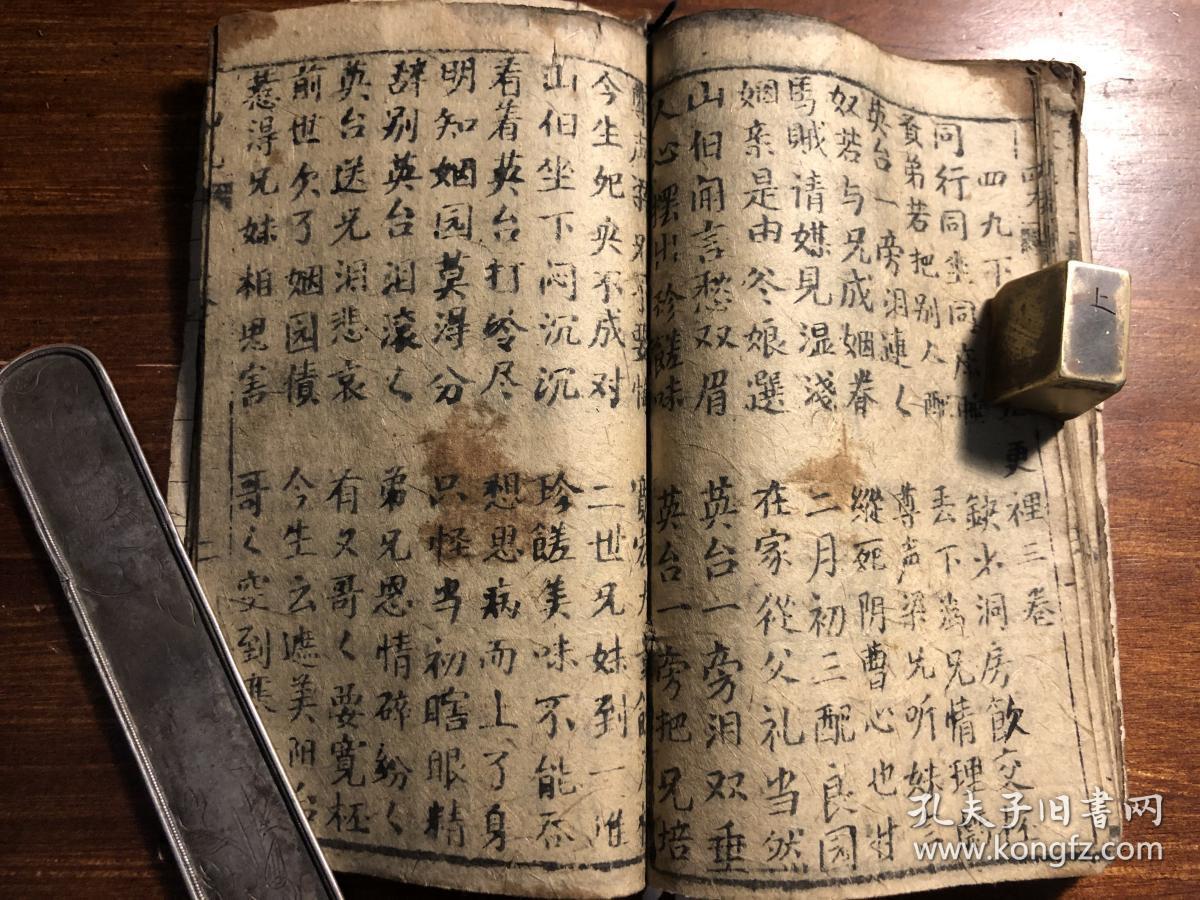 四九下
裡三卷
同行同坐同床睡
賢弟若把別人配
丢下為兄情理
英台一旁泪連く
尊声梁兄听妹
奴若与兄成姻眷
縱死阴曹心也甘
馬賊请媒見湿淺
二月初三配良园
姻亲是由冬娘選
在家從父礼当然
山伯闻言愁双眉
英台一旁泪双垂
人心擺出珍饈味
英台一旁把兄培
今生死央不成对
二世兄妹到一堆
山伯坐下闷沉沉
珍饈美味不能吞
看着英台打吟尽
想思病而上了身
明知姻园莫得分
只怪当初瞎眼精
辞别英台泪滚く
弟兄恩情碎紛く
英台送兄泪悲哀
有又哥く要寬怀
前世欠了姻园債
今生云遮美阳台
惹得兄妹相思害
哥く
上
孔夫子旧書网
www.kongfz.com